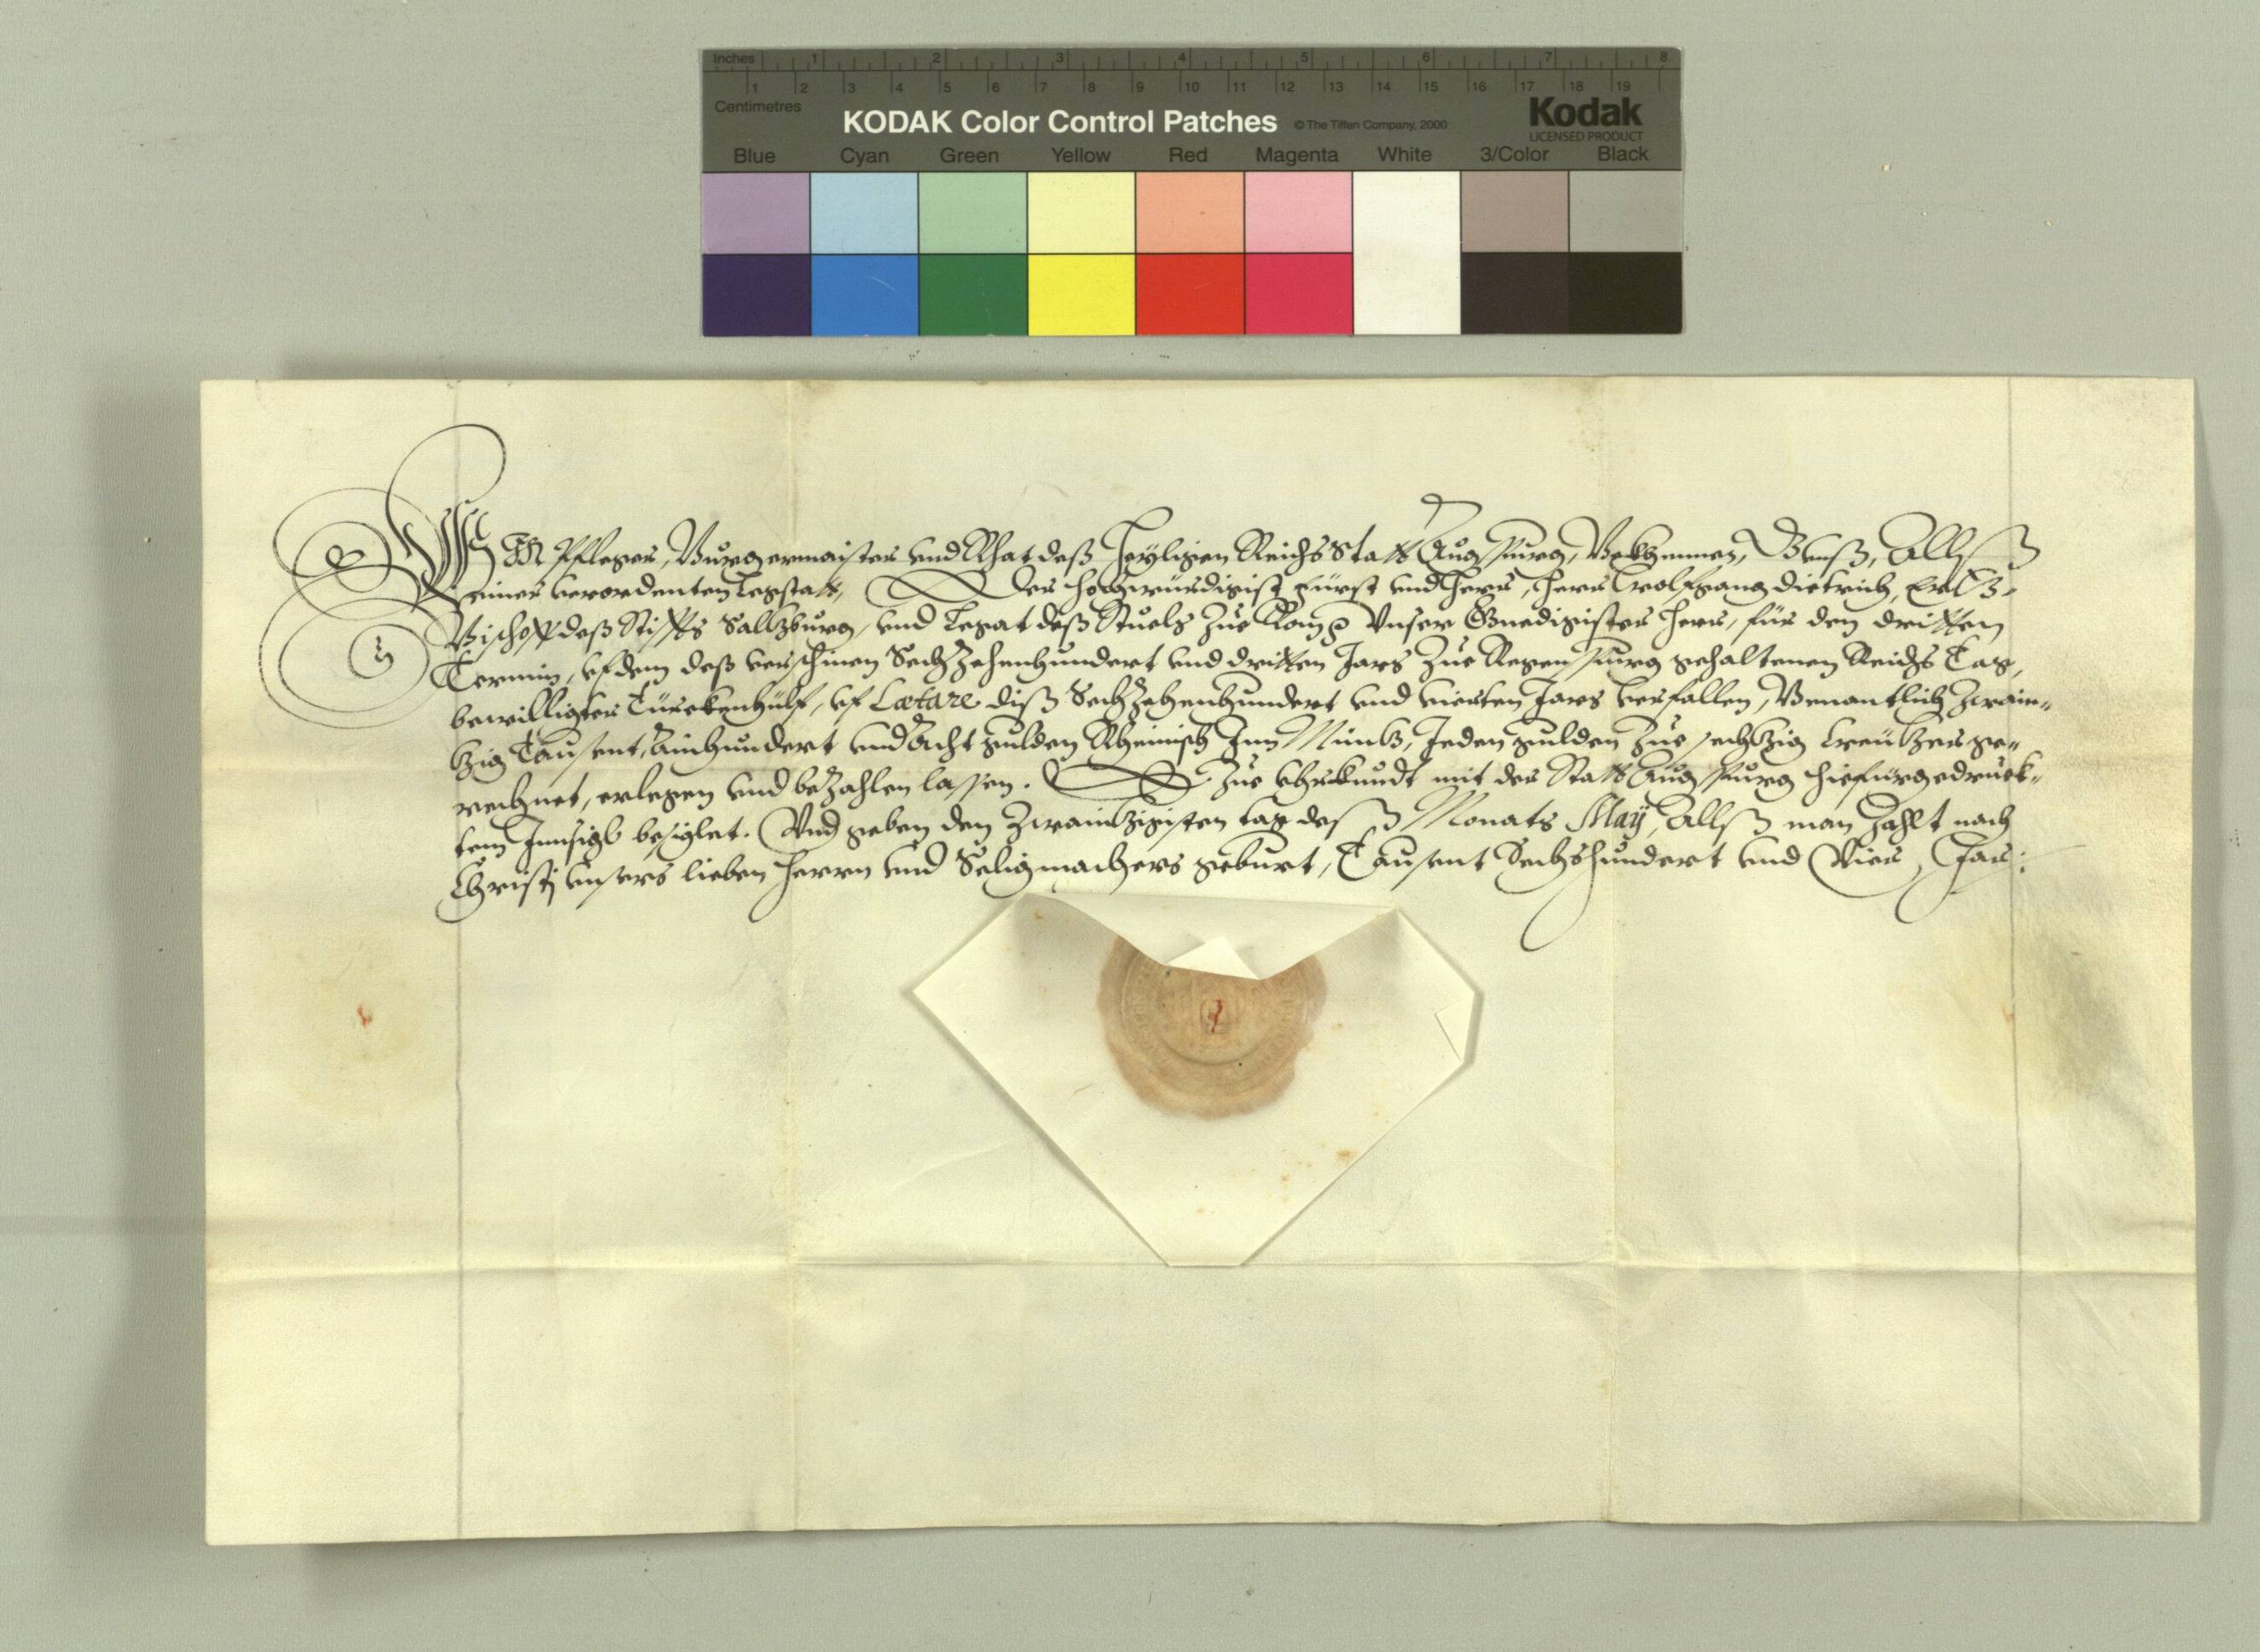 Inches 1 2 3 4 5 6 7 8
1 2 3 4 5 6 7 8 9 10 11 12 13 14 15 16 17 18 19
Centimetres
KODAK Color Control Patches © The Tiffen Company, 2000 Kodak
LICENSED PRODUCT
Blue Cyan Green Yellow Red Magenta White 3/Color Black
WIR Pfleger, Burgermaister und Rhat deß Heyligen Reichs Statt Augspurg, Bekhennen, Daß Unß, Allß
einer verordenten Legstatt, Der Hochwürdigist Fürst und Herr, Herr Wolfgang Dietrich, Ertz-
Bischoff deß Stiffts Saltzburg, und Legat deß Stuels zue Rom Unser Gnedigister Herr, für den dritten
Termin, uf dem deß verschinen Sechzehenhundert und dritten Jars zue Regenspurg gehaltenen Reichs Tag,
bewilligter Türckenhülf, uf Lætare diß Sechzehenhundert und vierten Jars verfallen, Benantlich Zwain-
tzig Tausent, Ainhundert und Acht gulden Rheinisch Inn Müntz, Jeden gulden zue sechtzig Creützer ge-
rechnet, erlegen und bezahlen lassen. Zue Uhrkundt mit der Statt Augspurg hiefürgedruck-
tem Innsigl besiglet. Und geben den Zwaintzigisten tag deß Monats May, Allß man zahlt nach
Christj unsers lieben Herrn und Seligmachers geburt, Tausent Sechshundert und Vier Jar: